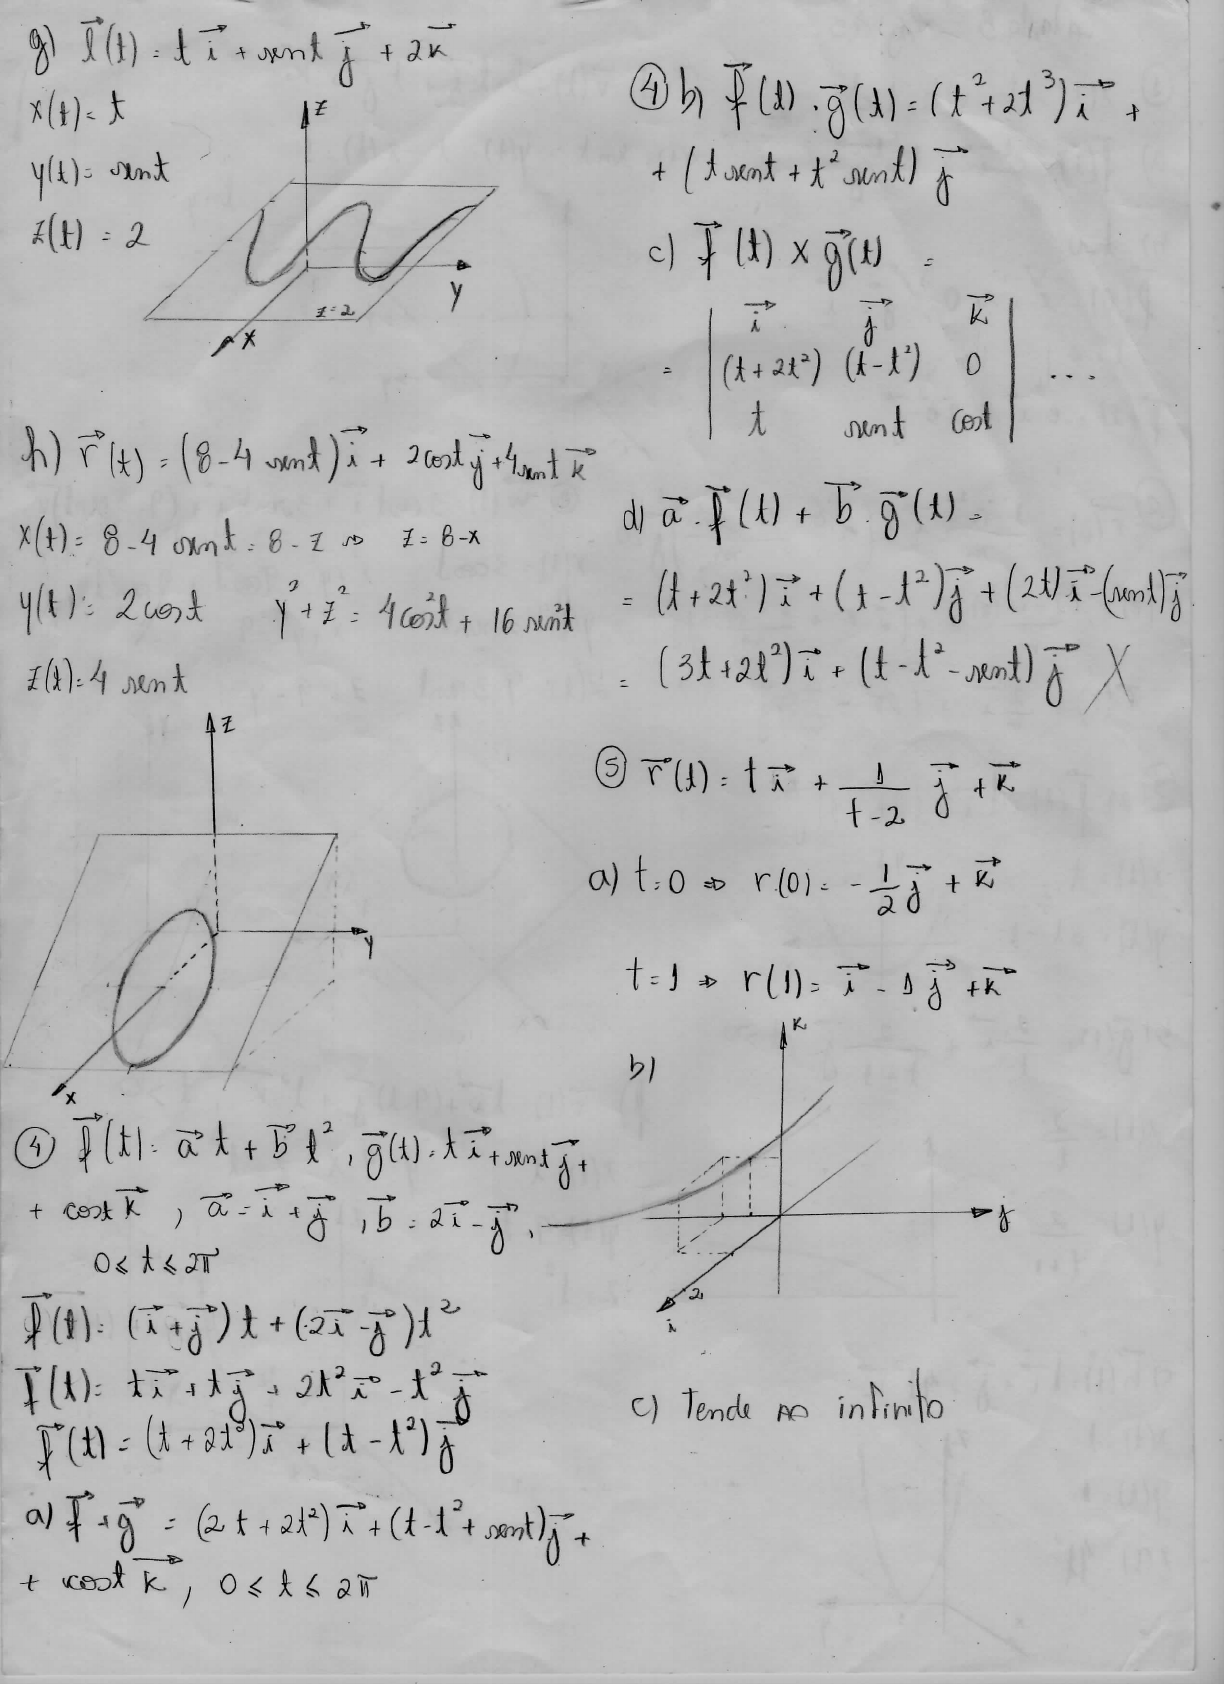 g) l⃗(t) = t i⃗ + sent j⃗ + 2k⃗
x(t) = t
y(t) = sent
z(t) = 2
z
y
x
z=2
h) r⃗(t) = (8-4 sent) i⃗ + 2cost j⃗ + 4sent k⃗
x(t) = 8-4 sent = 8-z ⇒ z = 8-x
y(t) = 2cost y² + z² = 4cos²t + 16 sen²t
z(t) = 4 sent
z
y
x
④ f⃗(t) = a⃗ t + b⃗ t², g⃗(t) = t i⃗ + sent j⃗ +
+ cost k⃗, a⃗ = i⃗ + j⃗, b⃗ = 2i⃗ - j⃗,
0 ≤ t ≤ 2π
f⃗(t) = (i⃗ + j⃗) t + (2i⃗ - j⃗) t²
f⃗(t) = t i⃗ + t j⃗ + 2t² i⃗ - t² j⃗
f⃗(t) = (t + 2t²) i⃗ + (t - t²) j⃗
a) f⃗ + g⃗ = (2t + 2t²) i⃗ + (t - t² + sent) j⃗ +
+ cost k⃗, 0 ≤ t ≤ 2π
④ b) f⃗(t) . g⃗(t) = (t² + 2t³) i⃗ +
+ (t sent + t² sent) j⃗
c) f⃗(t) X g⃗(t) =
= | i⃗ j⃗ k⃗ |
| (t + 2t²) (t - t²) 0 | ...
| t sent cost |
d) a⃗ . f⃗(t) + b⃗ . g⃗(t) =
= (t + 2t²) i⃗ + (t - t²) j⃗ + (2t) i⃗ - (sent) j⃗
= (3t + 2t²) i⃗ + (t - t² - sent) j⃗ X
⑤ r⃗(t) = t i⃗ + 1/(t-2) j⃗ + k⃗
a) t = 0 ⇒ r(0) = -1/2 j⃗ + k⃗
t = 1 ⇒ r(1) = i⃗ - 1 j⃗ + k⃗
b)
k
j
2
i
c) Tende ao infinito